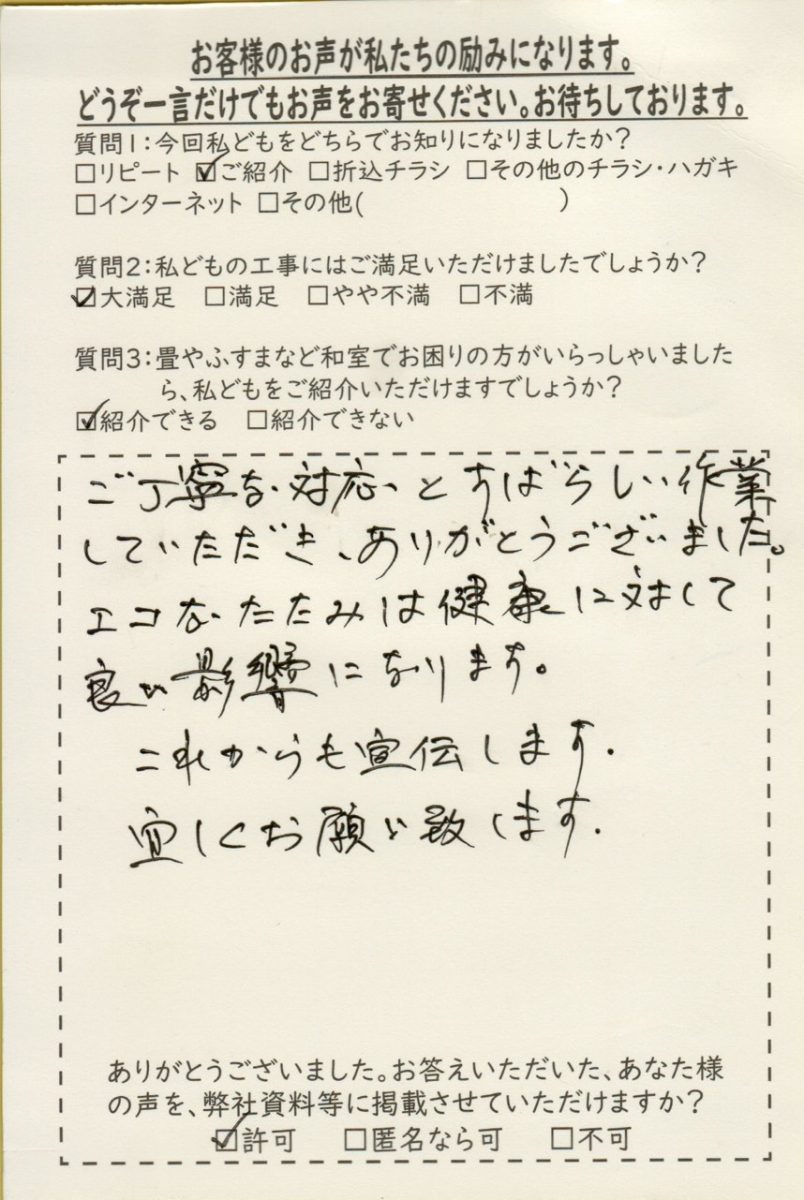 お客様のお声が私たちの励みになります。
どうぞ一言だけでもお声をお寄せください。お待ちしております。
質問1:今回私どもをどちらでお知りになりましたか?
□リピート ☑ご紹介 □折込チラシ □その他のチラシ・ハガキ
□インターネット □その他( )
質問2:私どもの工事にはご満足いただけましたでしょうか?
☑大満足 □満足 □やや不満 □不満
質問3:畳やふすまなど和室でお困りの方がいらっしゃいました
ら、私どもをご紹介いただけますでしょうか?
☑紹介できる □紹介できない
ご丁寧な対応とすばらしい作業
していただき、ありがとうございました。
エコなたたみは健康に対して
良い影響になります。
これからも宣伝します.
宜しくお願い致します.
ありがとうございました。お答えいただいた、あなた様
の声を、弊社資料等に掲載させていただけますか?
☑許可 □匿名なら可 □不可